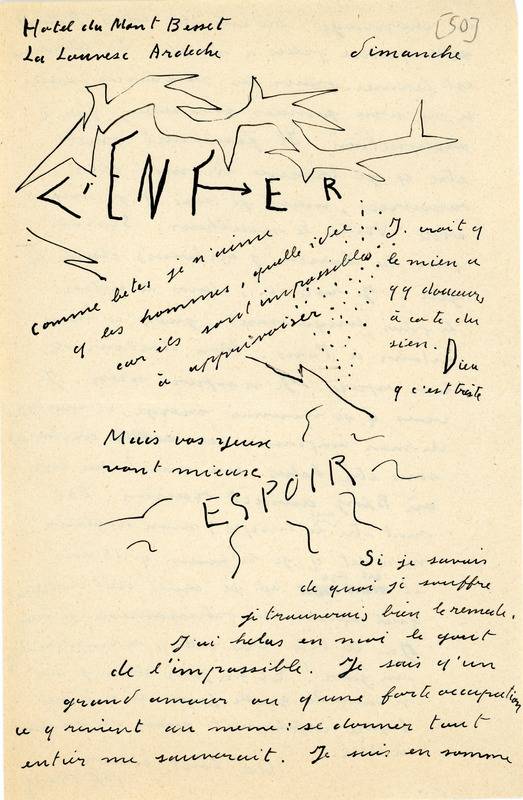 Hotel du Mont Besset
La Louvesc Ardeche
dimanche
[50]
L'ENFER
comme bêtes je n'aime
q les hommes, quelle idee
car ils sont impossibles
à apprivoiser
J. croit q
le mien a
qq douceurs
à cote du
sien.
Dieu
q c'est triste
Mais vos yeux
vont mieux
ESPOIR
Si je savais
de quoi je souffre
je trouverais bien le remede.
J'ai helas en moi le gout
de l'impossible. Je sais q'un
grand amour ou q'une forte occupation
ce q revient au meme : se donner tout
entier me sauverait. Je suis en somme